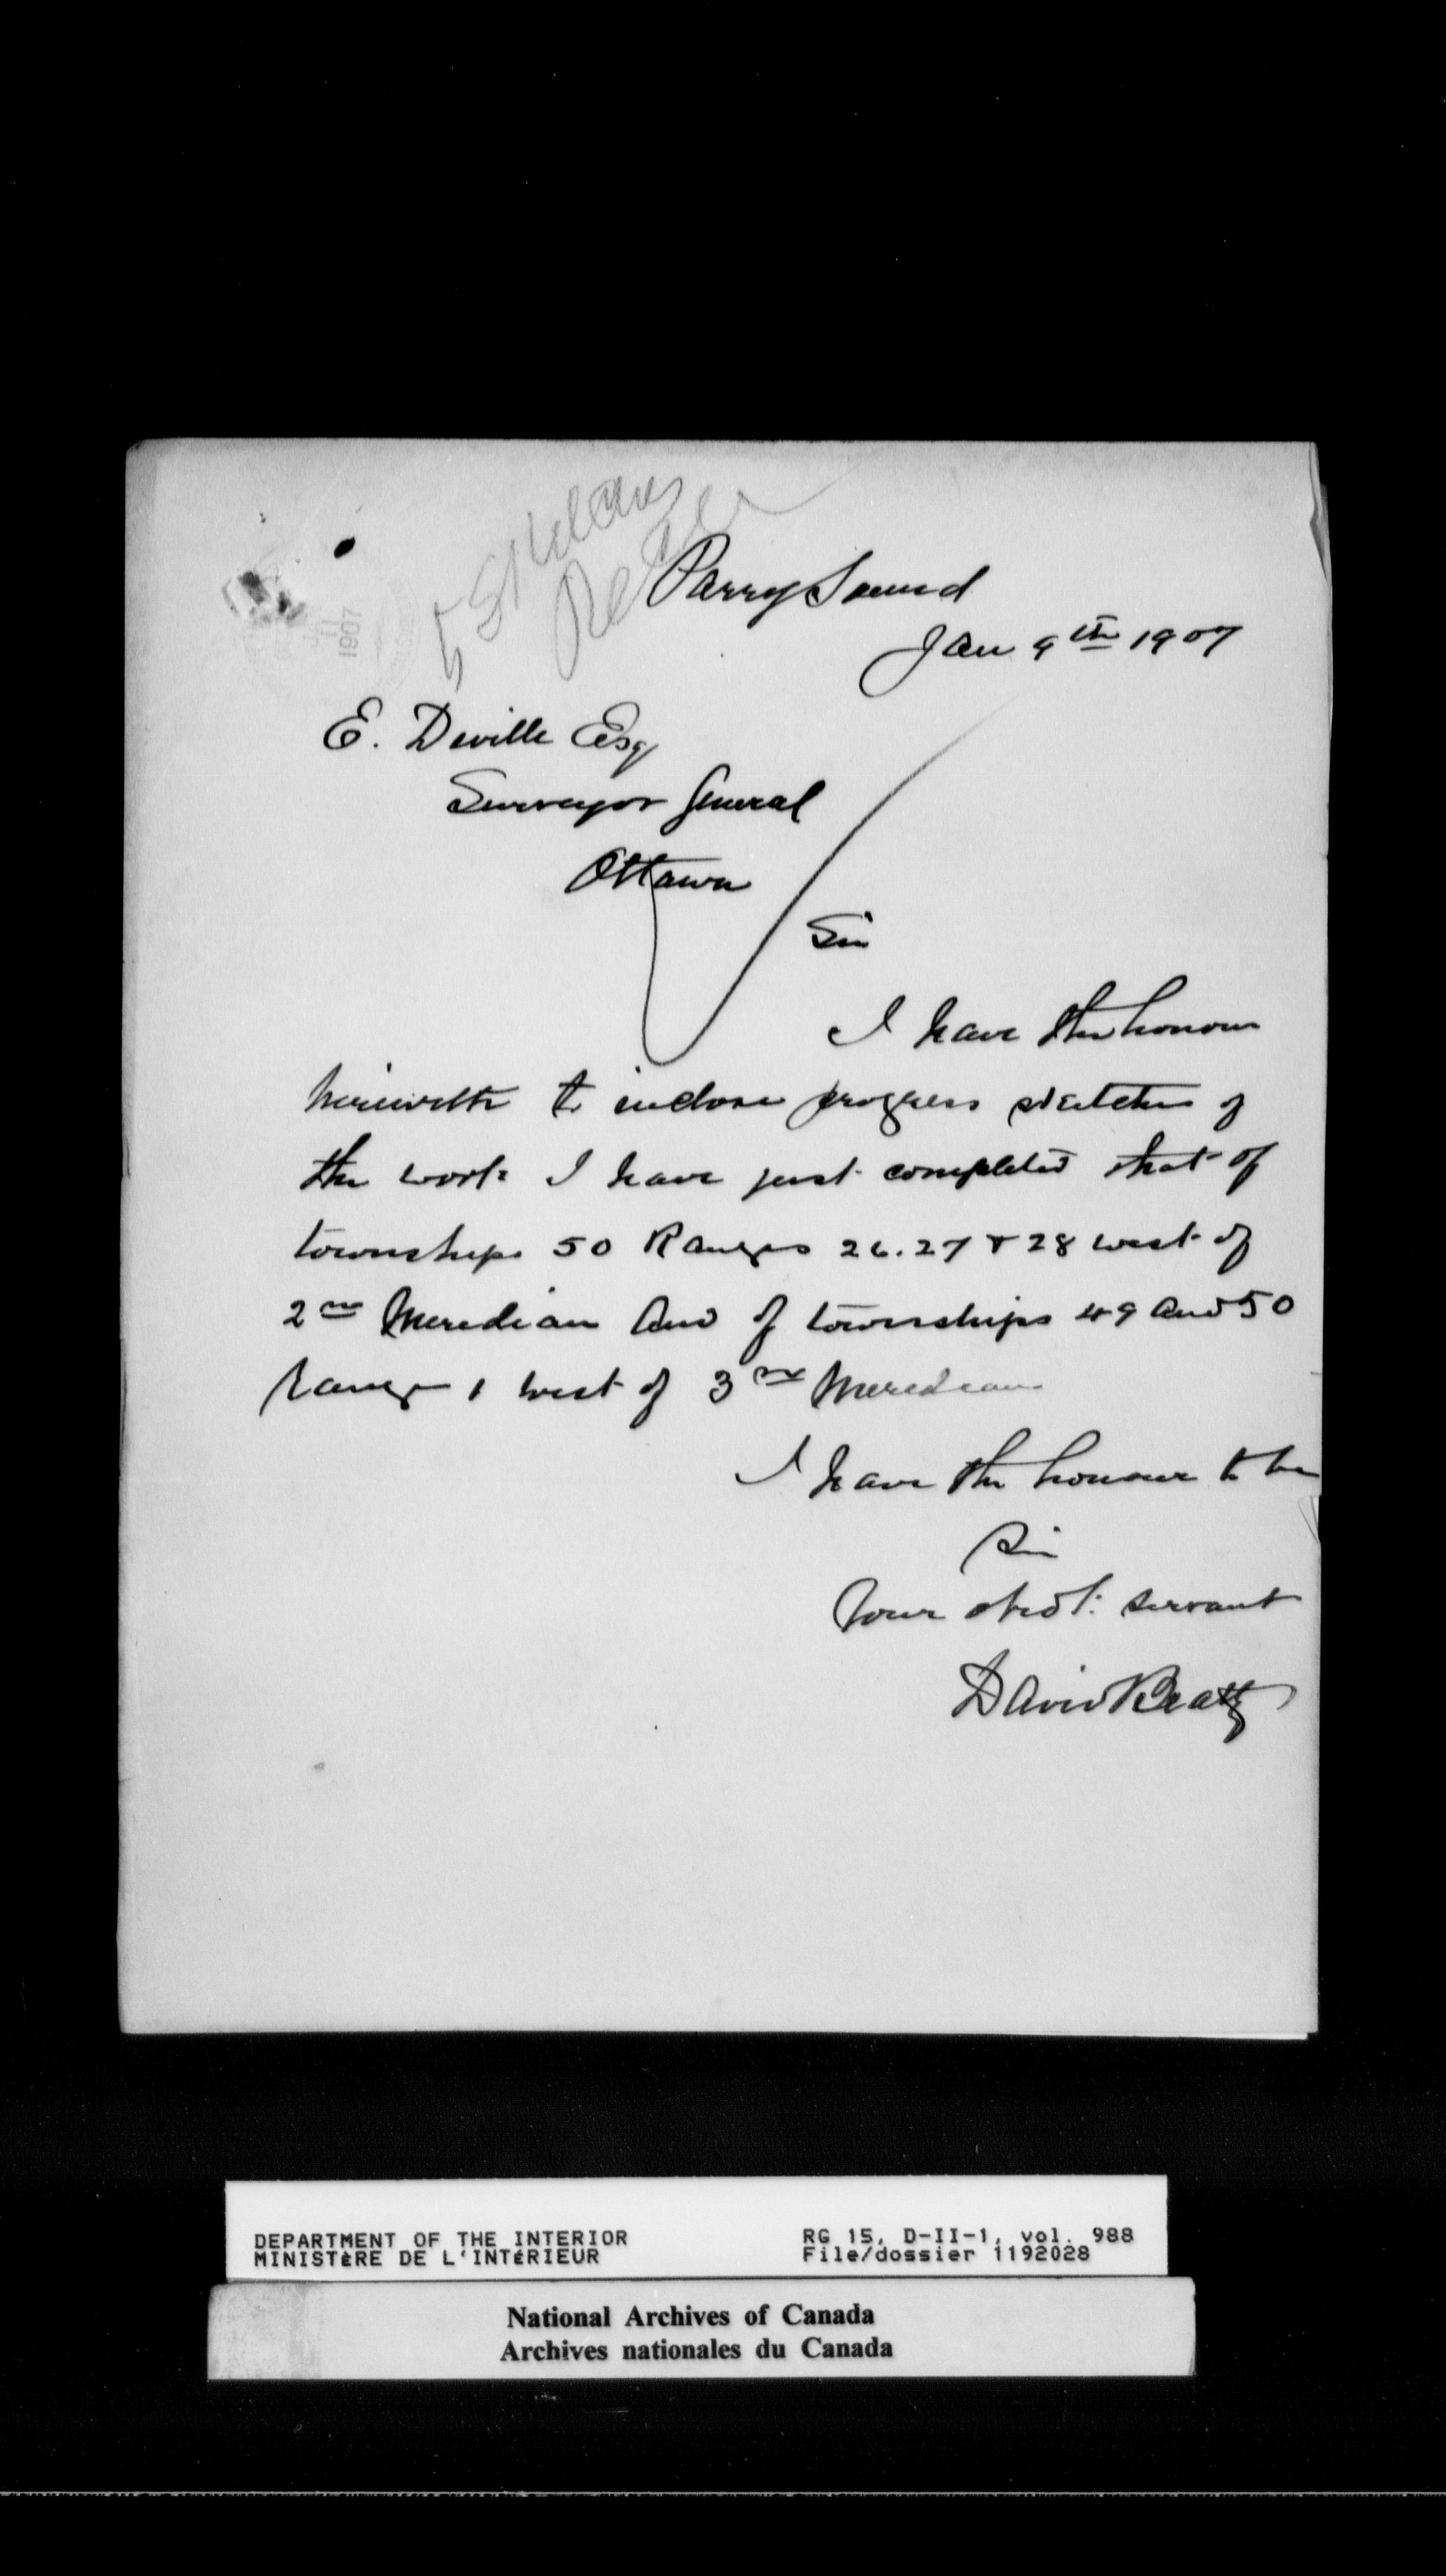 5 Sketches
Parry Sound
Jan 9th 1907
1907
E. Deville Esq
Surveyor General
Ottawa
Sir
I have the honour
herewith to enclose progress sketches of
the work I have just completed that of
townships 50 Ranges 26.27 & 28 west of
2nd Meredian and of townships 49 and 50
Range 1 West of 3rd Meredian
I have the honour to be
Sir
Your obedt: servant
David Beatty
DEPARTMENT OF THE INTERIOR
MINISTÈRE DE L'INTÉRIEUR
RG 15, D-II-1, vol. 988
File/dossier 1192028
National Archives of Canada
Archives nationales du Canada